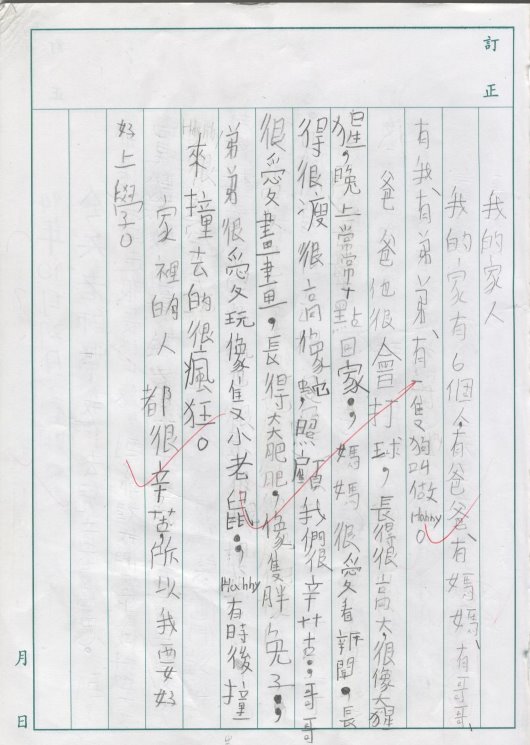 訂正
我的家人
我的家有6個人,有爸爸、有媽媽、有哥哥、
有我、有弟弟、有一隻狗叫做Hanny。
爸爸他很會打球,長得很高大,很像大猩
猩,晚上常常十點回家。;媽媽很愛看新聞,長
得很瘦很高像蛇,照顧我們很辛苦;哥哥
很愛畫畫,長得大肥肥,像隻胖兔子;
弟弟很愛玩像隻小老鼠。;Hanny有時後撞
來撞去的很瘋狂。
家裡的人都很辛苦,所以我要好
好上學。
月 日